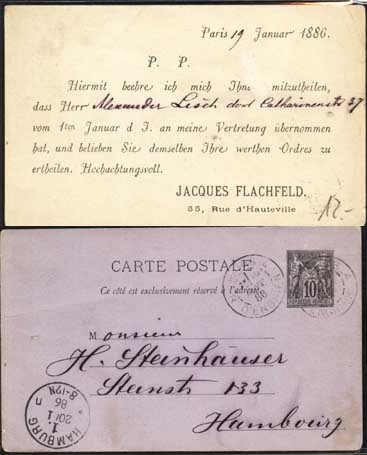 Paris 19 Januar 1886.
P. P.
Hiermit beehre ich mich Ihnen mitzutheilen,
dass Herr Alexander Lesch dort Catharinenstr 37
vom 1ten Januar d J. an meine Vertretung übernommen
hat, und belieben Sie demselben Ihre werthen Ordres zu
ertheilen. Hochachtungsvoll.
JACQUES FLACHFELD.
55, Rue d'Hauteville
12.-
CARTE POSTALE
Ce côté est exclusivement réservé à l'adresse
10
Monsieur
H. Steinhäuser
Steinstr 133
Hambourg
HAMBURG
1.
20/1
86
8-12N